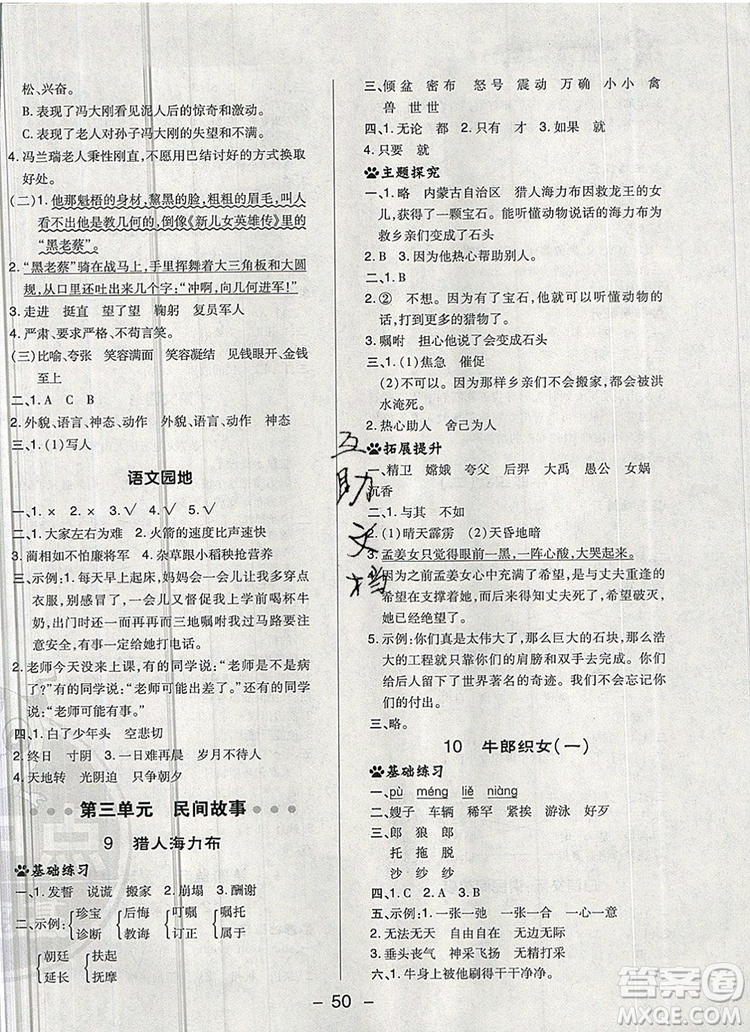 松、兴奋。
B. 表现了冯大刚看见泥人后的惊奇和激动。
C. 表现了老人对孙子冯大刚的失望和不满。
4. 冯兰瑞老人秉性刚直,不愿用巴结讨好的方式换取
好处。
(二)1. 他那魁梧的身材,黧黑的脸,粗粗的眉毛,叫人
看不出他是教几何的,倒像《新儿女英雄传》里的
“黑老蔡”。
2. “黑老蔡”骑在战马上,手里挥舞着大三角板和大圆
规,从口里还吐出来几个字:“冲啊,向几何进军!”
3. 走进 挺直 望了望 鞠躬 复员军人
4. 严肃、要求严格、不苟言笑。
(三)比喻、夸张 笑容满面 笑容凝结 见钱眼开、金钱
至上
二、1. A C B
2. 外貌、语言、神态、动作 外貌、语言、动作 神态
三、1. (1)写人
语文园地
一、1. × 2. × 3. √ 4. √ 5. √
二、1. 大家左右为难 2. 火箭的速度比声速快
3. 蔺相如不怕廉将军 4. 杂草跟小稻秧抢营养
三、示例:1. 每天早上起床,妈妈会一会儿让我多穿点
衣服,别感冒了,一会儿又让我吃个鸡蛋喝杯牛
奶,出门时还一而再再而三地嘱咐我过马路要注
意安全,有一大堆话等待一定给她打电话。
2. 老师今天没来上课,有的同学说:“老师可能生病
了。”有的同学说:“老师可能出差了。”还有的同学
说:“老师可能有事。”
四、1. 白了少年头 空悲切
2. 终日 寸阴 3. 一日难再晨 岁月不待人
4. 天地转 光阴迫 只争朝夕
第三单元 民间故事
9 猎人海力布
基础练习
一、1. 发誓 说谎 搬家 2. 崩塌 3. 酬谢
二、示例: 珍宝 后悔 叮嘱 嘱托
诊断 教诲 订正 属于
朝廷 扶起
延长 抚摩
三、倾盆 密布 怒号 震动 万确 小小 禽
兽 世世
四、1. 无论 都 2. 只有 才 3. 如果 就
4. 只要 就
主题探究
一、1. 略 内蒙古自治区 猎人海力布因救龙王的女
儿,获得了一颗宝石。能听懂动物说话的海力布为
救乡亲们变成了石头
二、1. B 3. 因为他热心帮助别人。
三、1. B
2. ② 不想。因为有了宝石,他就可以听懂动物的
话,打到更多的猎物了。
3. 嘱咐 担心他说了会变成石头
四、1. (1)焦急 催促
(2)不可以。因为乡亲们不会搬家,都会被洪
水淹死。
2. 热心助人 舍己为人
拓展提升
一、精卫 嫦娥 夸父 后羿 大禹 愚公 女娲
沉香
二、1. 与其 不如
2. (1)晴天霹雳 (2)天昏地暗
3. 孟姜女只觉得眼前一黑,一阵心酸,大哭起来。
因为之前孟姜女心中充满了希望,是与丈夫重逢的
希望在支撑着她,可丈夫死了,她的希望破灭了,
她已经绝望了。
5. 示例:你们真是太伟大了,那么巨大的石块,那么浩
大的工程都是凭借你们的肩膀和双手完成的,你们
给后人留下了世界著名的奇迹。
三、略。
10 牛郎织女(一)
基础练习
一、pù méng liě niàng
二、嫂子 车辆 稀罕 紧挨 游泳 好歹
三、郎 狼 郎
托 拖 脱
沙 纱 纱
四、1. C 2. A 3. B
五、示例:1. 一张一弛 一大一小
2. 无法无天 自由自在 无边无际
3. 垂头丧气 神采飞扬 兴高采烈
六、1. 牛身上被他刷得干干净净。
互
助
文
档
50
答案圈
MXQE.COM